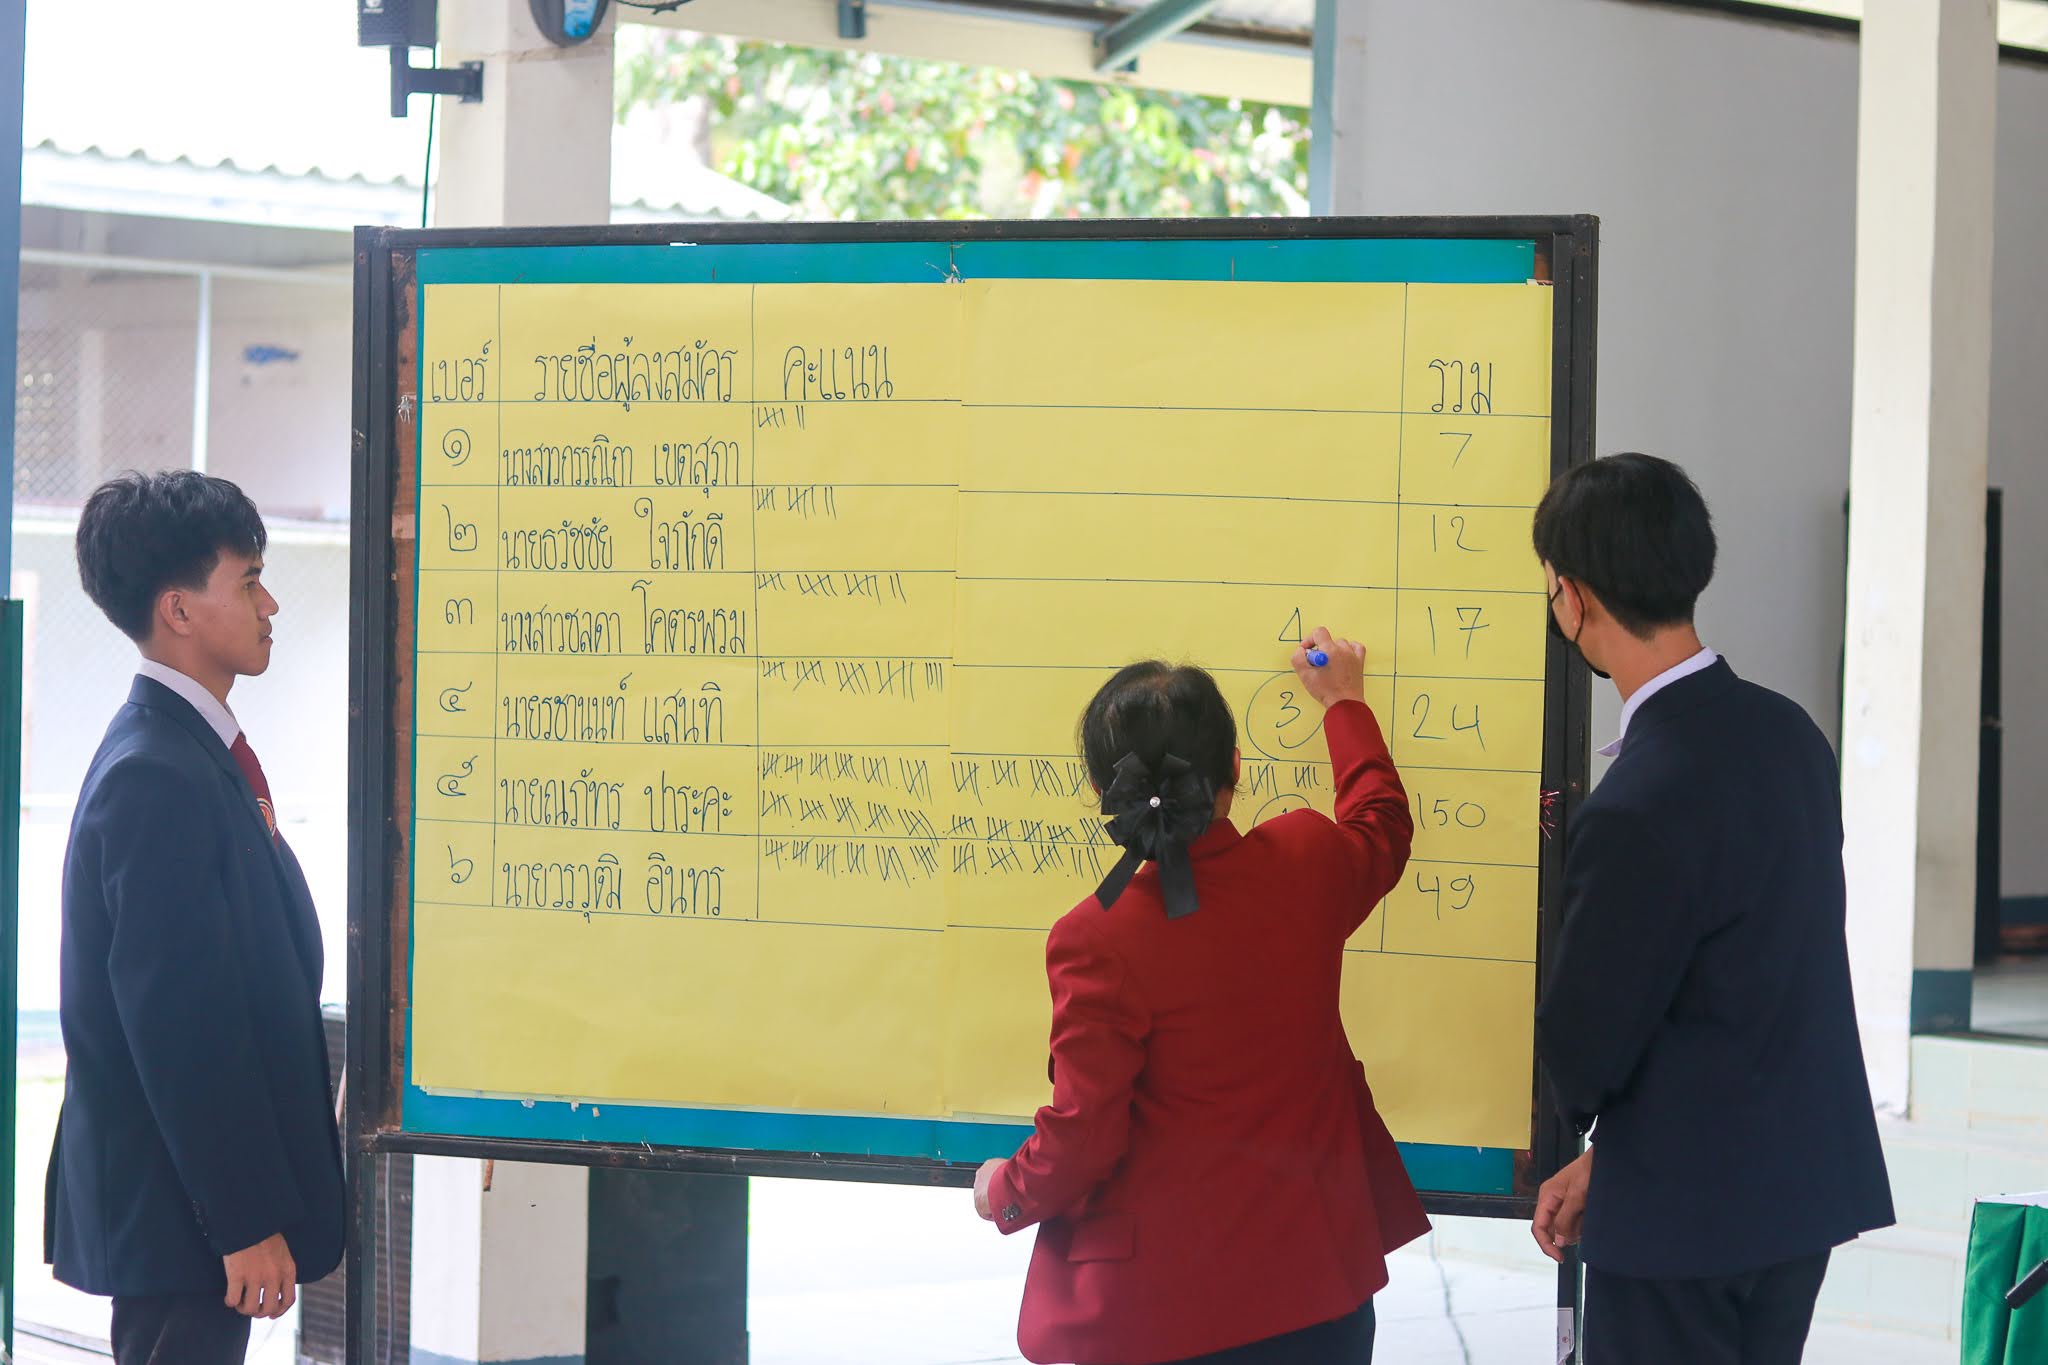 เบอร์ รายชื่อผู้ลงสมัคร คะแนน รวม
๑ นางสาวกรรณิกา เขตสุภา 7
๒ นายธวัชชัย ใจภักดี 12
๓ นางสาวชลดา โคตรพรม 4 17
๔ นายรชานนท์ แสนทิ 3 24
๕ นายณภัทร ปาระคะ 150
๖ นายวรวุฒิ อินทร 49